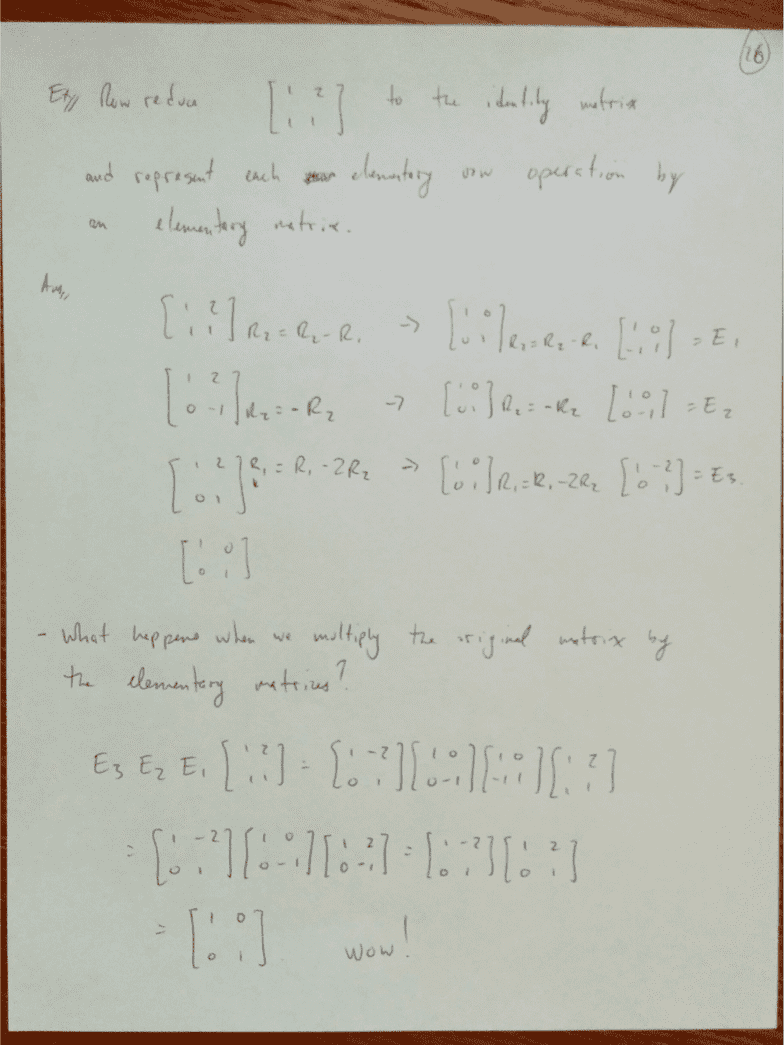 26
Ex// Row reduce [1 2; 1 1] to the identity matrix
and represent each elementary row operation by
an elementary matrix.
Ans//
[1 2; 1 1] R2 = R2 - R1 → [1 0; 0 1] R2 = R2 - R1 [1 0; -1 1] = E1
[1 2; 0 -1] R2 = -R2 → [1 0; 0 1] R2 = -R2 [1 0; 0 -1] = E2
[1 2; 0 1] R1 = R1 - 2R2 → [1 0; 0 1] R1 = R1 - 2R2 [1 -2; 0 1] = E3.
[1 0; 0 1]
- What happens when we multiply the original matrix by
the elementary matrices?
E3 E2 E1 [1 2; 1 1] = [1 -2; 0 1][1 0; 0 -1][1 0; -1 1][1 2; 1 1]
= [1 -2; 0 1][1 0; 0 -1][1 2; 0 -1] = [1 -2; 0 1][1 2; 0 1]
= [1 0; 0 1] Wow!